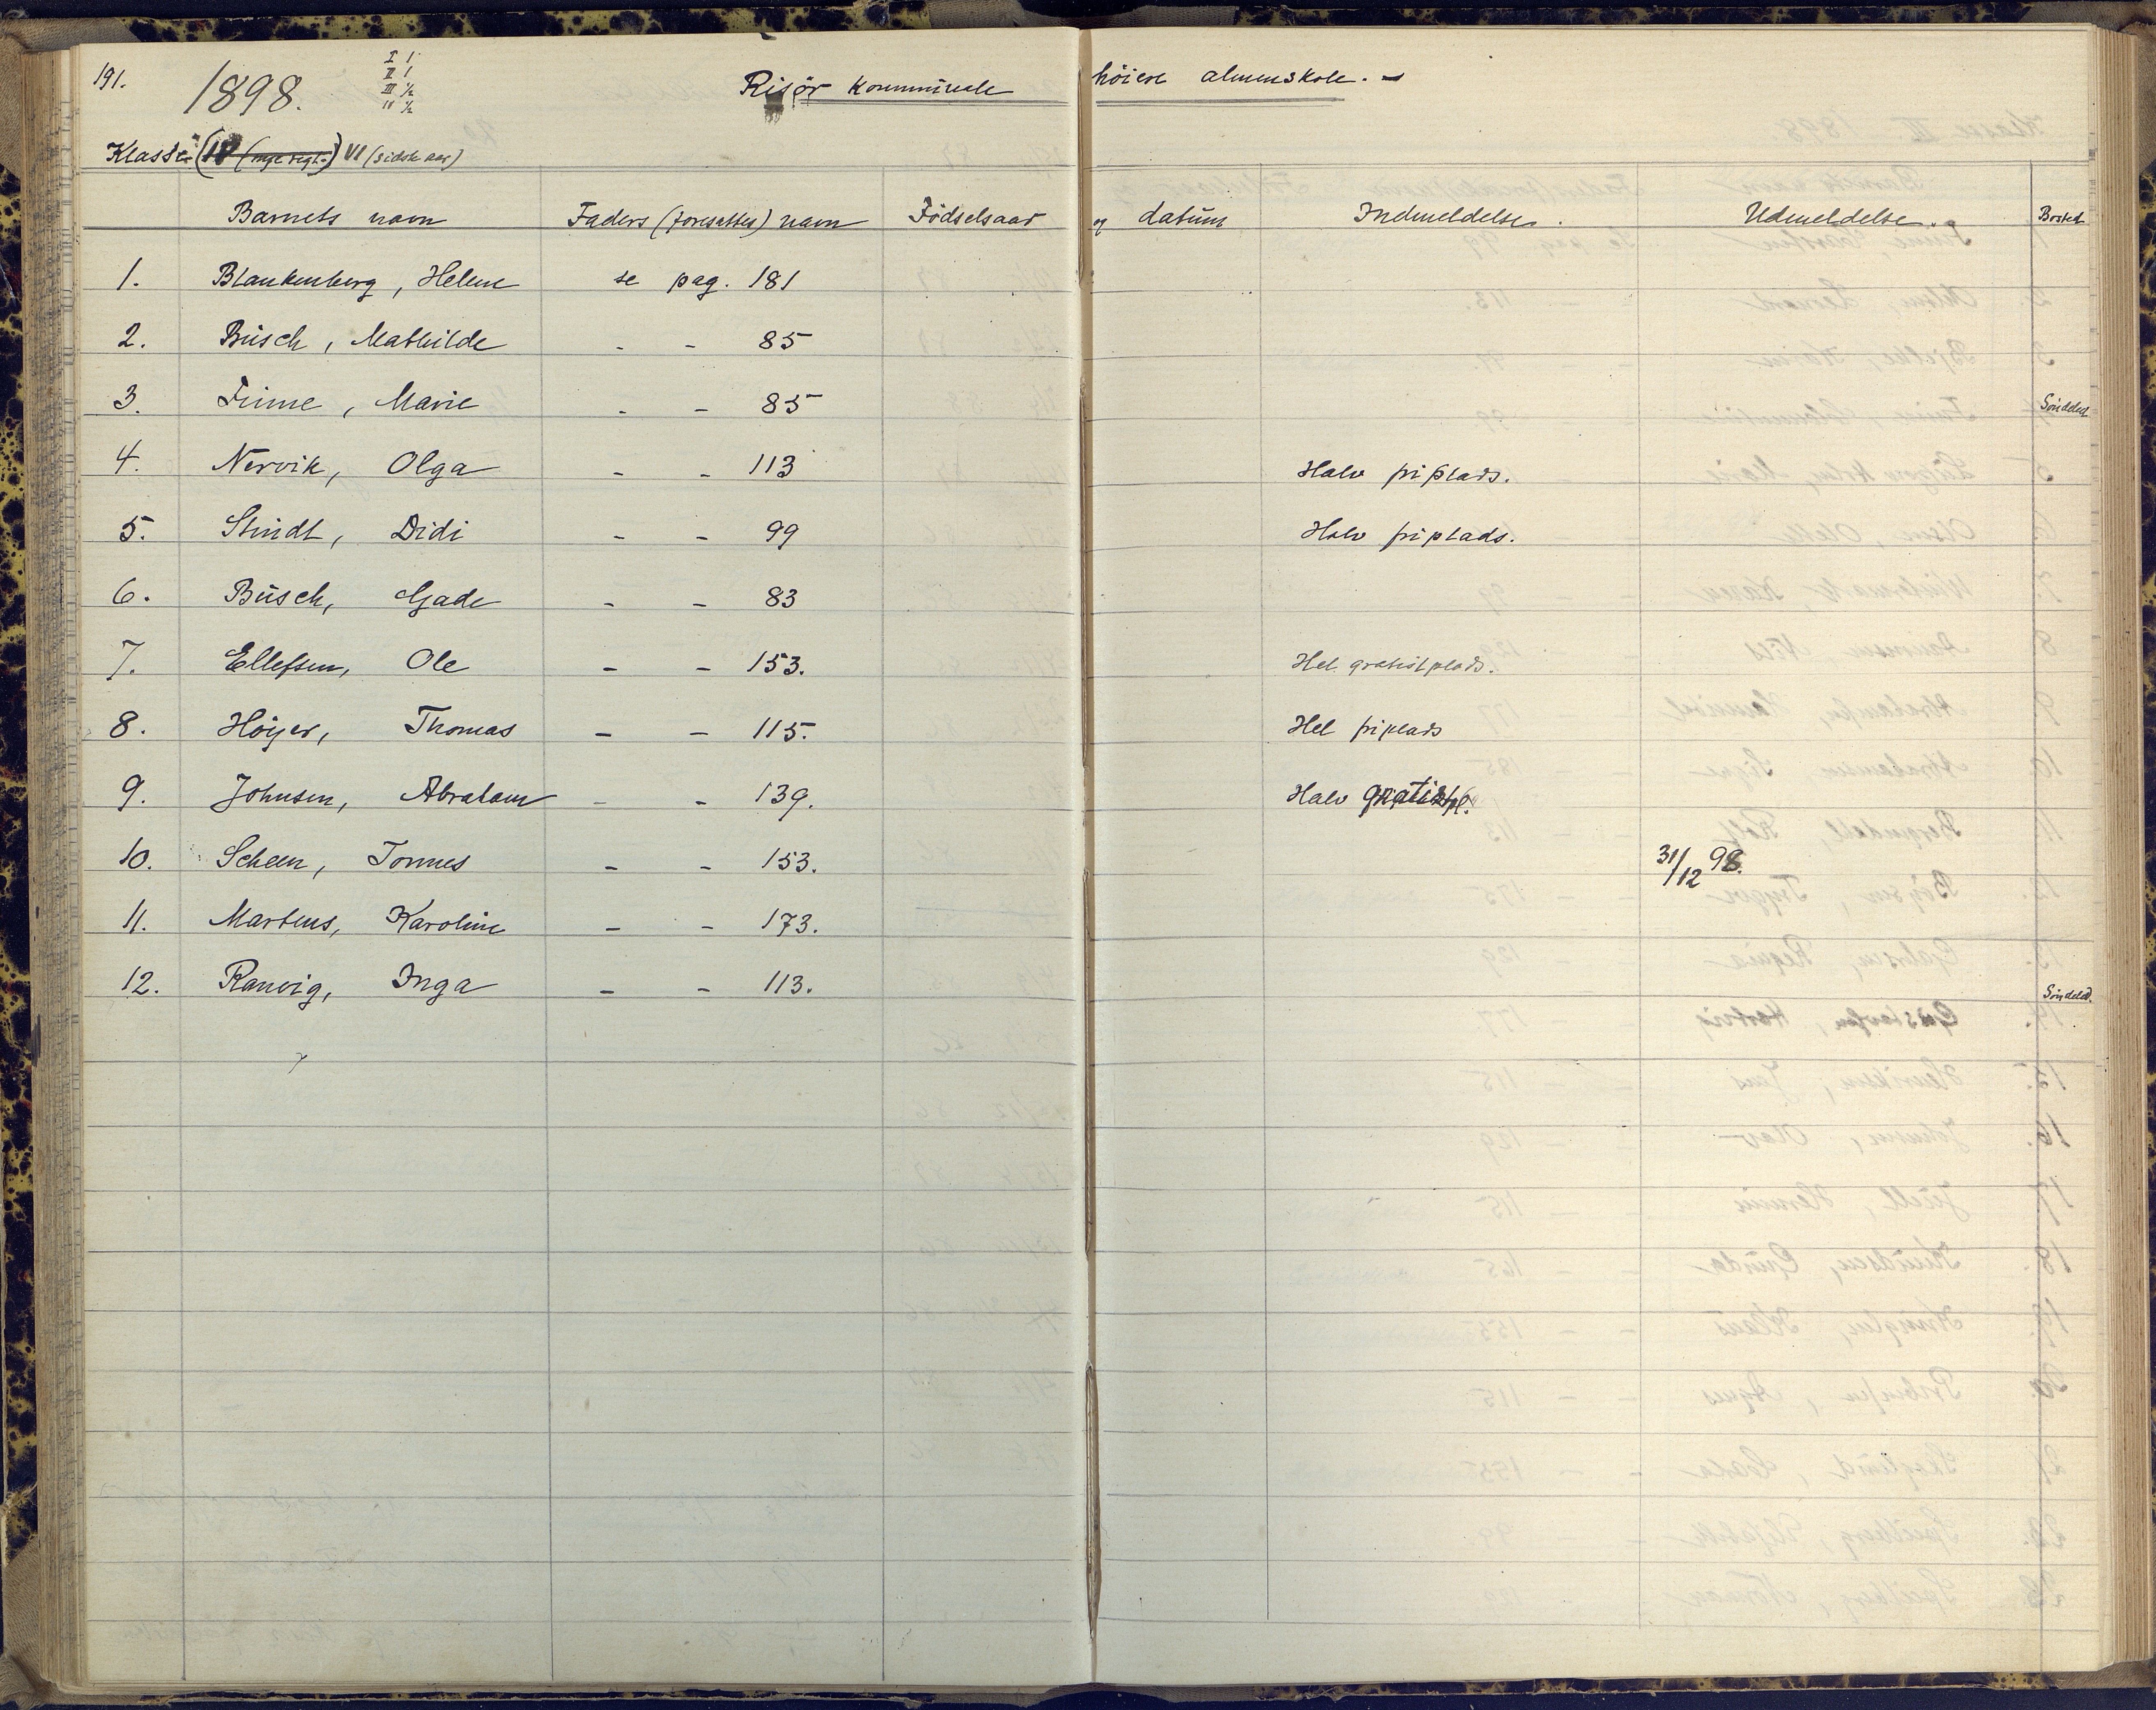 191.
1898.
I 1
II 1
III 1/2
IV 1/2
Risør kommunale høiere almenskole.
Klasse (IV ) VI (sidste aar)
Barnets navn Faders (foresattes) navn Födselsaar og datum Indmeldelse. Udmeldelse. Bosted
1. Blankenberg, Helene se pag. 181
2. Büsch, Mathilde - - 85
3. Finne, Marie - - 85 Söndeled
4. Nervik, Olga - - 113 Halv friplads.
5. Stindt, Didi - - 99 Halv friplads.
6. Büsch, Gade - - 83
7. Ellefsen, Ole - - 153. Hel gratistplads.
8. Höyer, Thomas - - 115. Hel friplads
9. Johnsen, Abraham - - 139. Halv gratistpl.
10. Scheen, Tønnes - - 153. 31/12 98.
11. Martens, Karoline - - 173.
12. Ranvig, Inga - - 113. Söndeled.